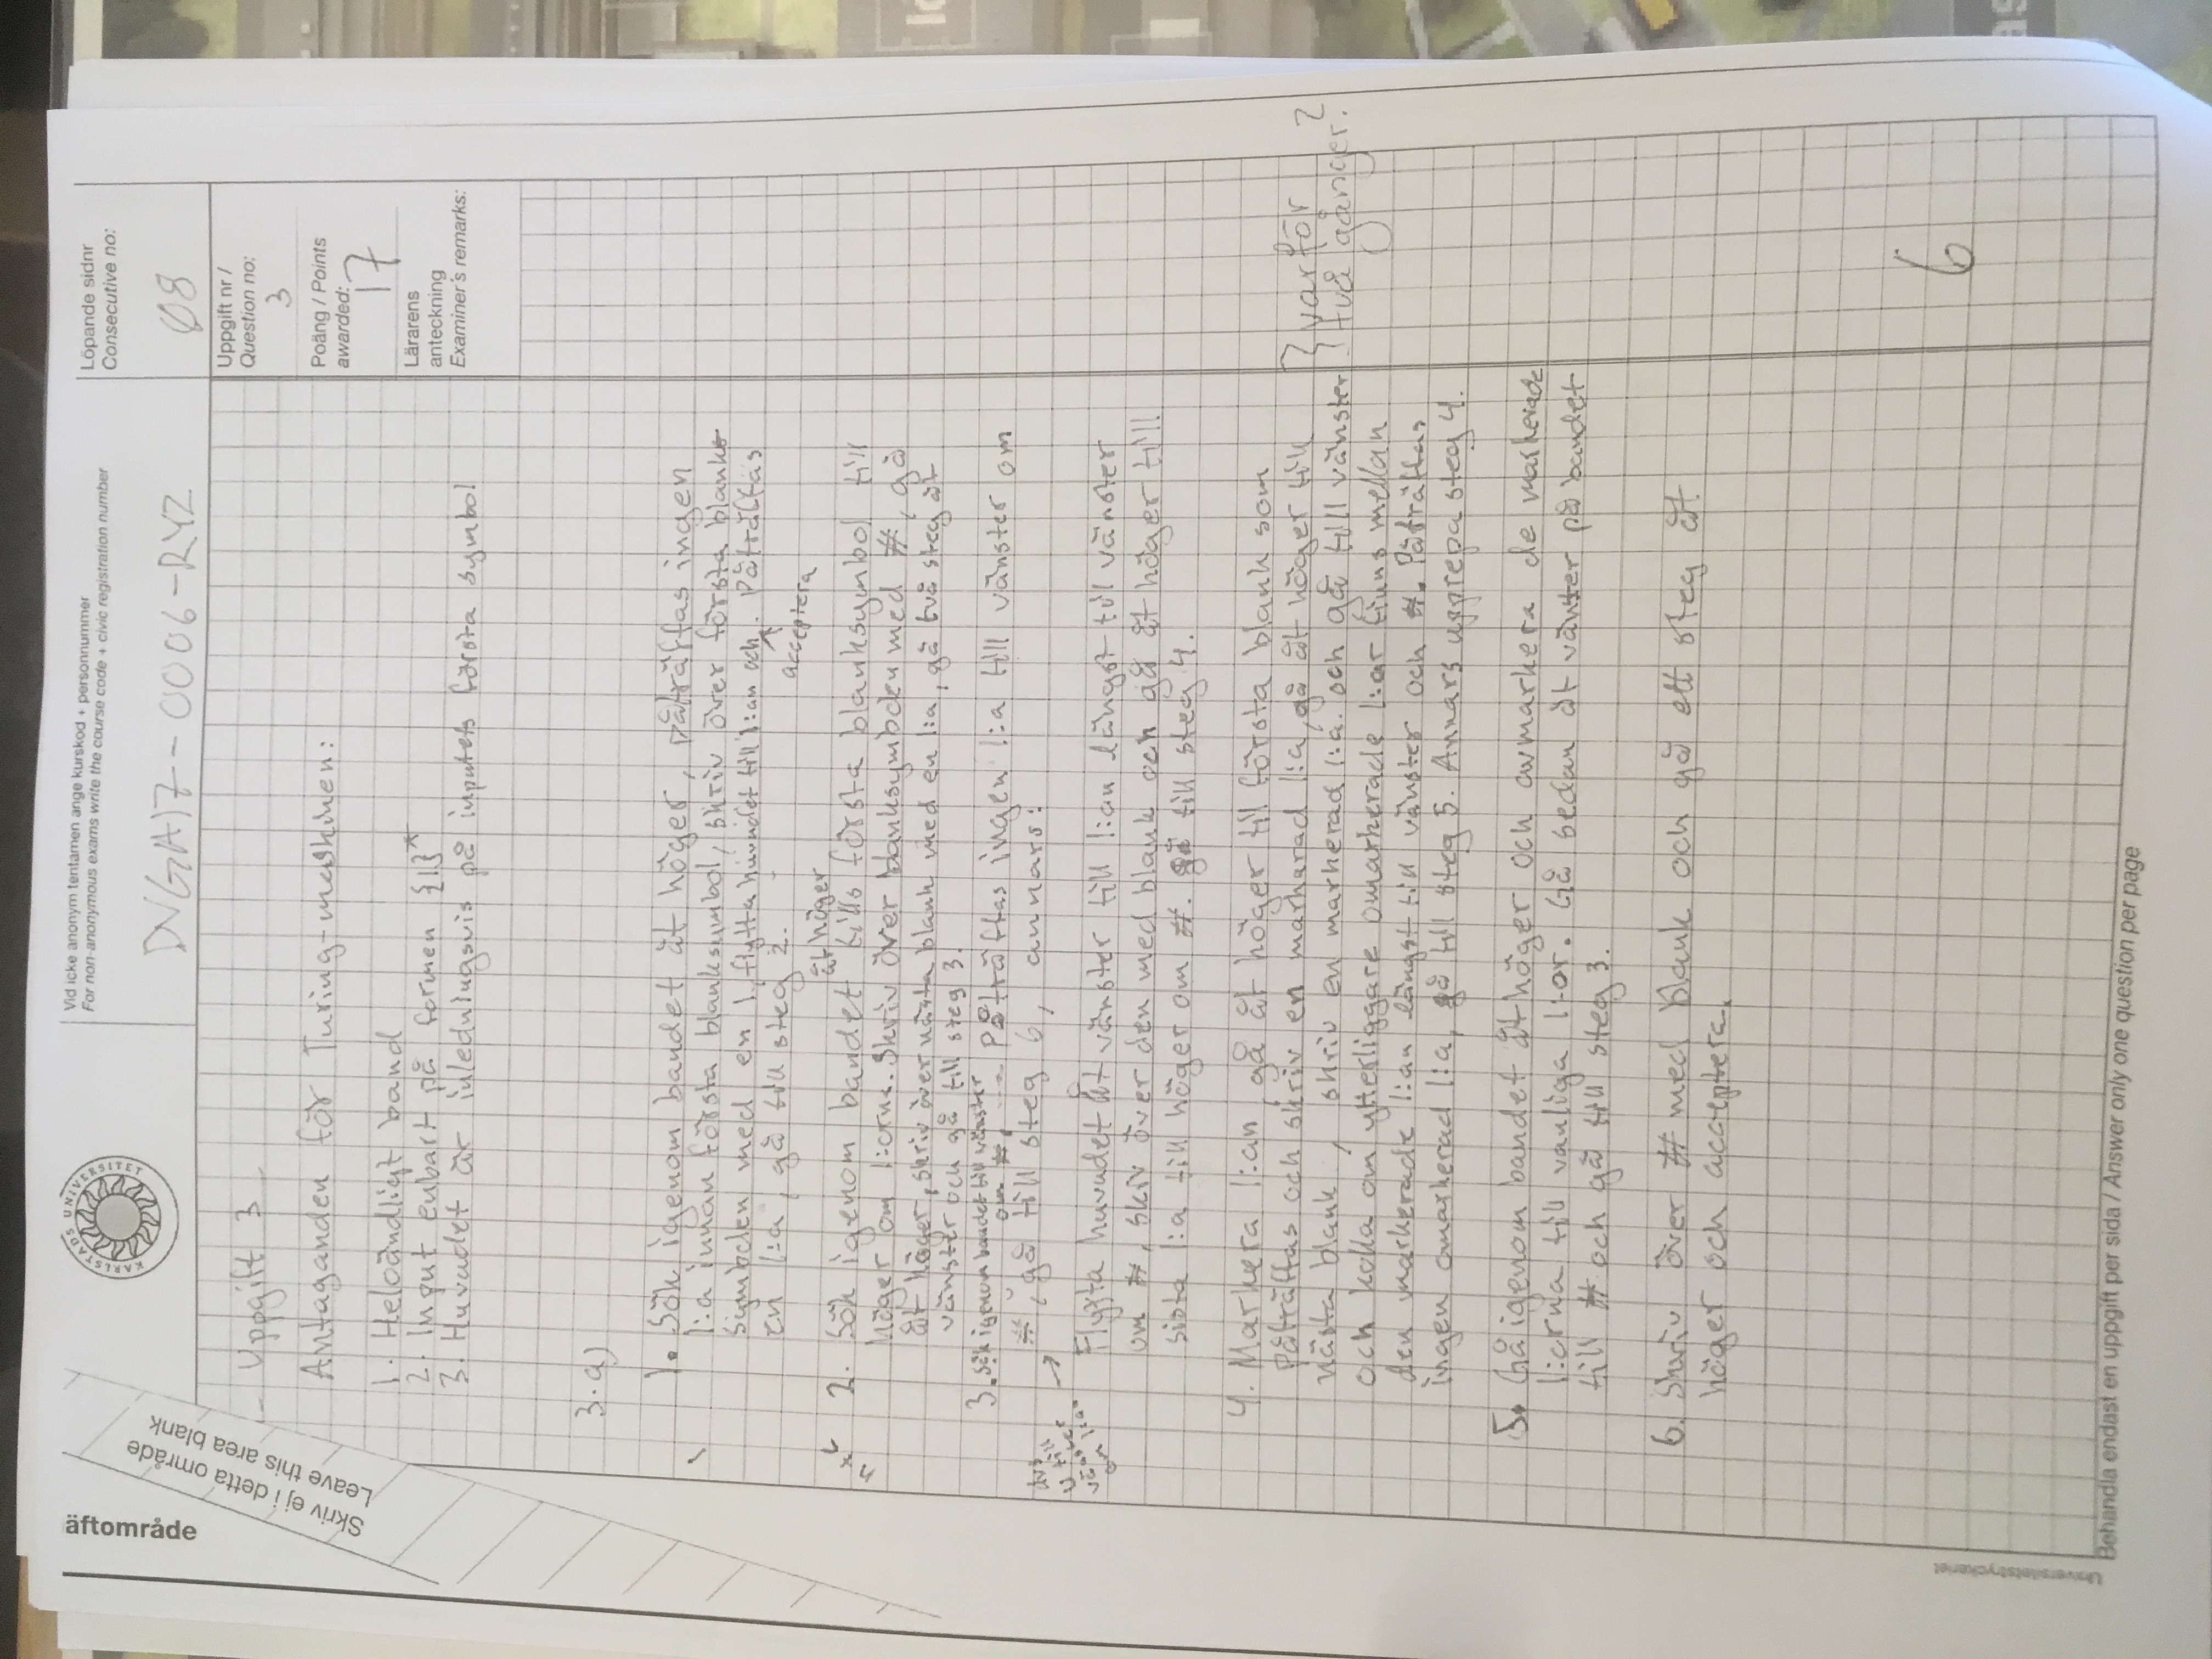 äftområde
Skriv ej i detta område
Leave this area blank
KARLSTADS UNIVERSITET
Vid icke anonym tentamen ange kurskod + personnummer
For non-anonymous exams write the course code + civic registration number
DVGA17-0006-RYZ
Löpande sidnr
Consecutive no:
08
Uppgift nr /
Question no:
3
Poäng / Points
awarded:
17
Lärarens
anteckning
Examiner's remarks:
- Uppgift 3 -
Antaganden för Turing-maskinen:
1. Heloändligt band
2. Input enbart på formen {1}*
3. Huvudet är inledningsvis på inputets första symbol
3.a)
1. Sök igenom bandet åt höger, påträffas ingen
1:a innan första blanksymbol, skriv över första blank
symbolen med en 1, flytta huvudet till 1:an och acceptera. Påträffas
en 1:a, gå till steg 2.
2. Sök igenom bandet åt höger tills första blanksymbol till
höger om 1:orna. Skriv över blanksymbolen med #, gå
åt höger, skriv över nästa blank med en 1:a, gå två steg åt
vänster och gå till steg 3.
3. Sök igenom bandet till vänster
om #, Påträffas ingen 1:a till vänster om
#, gå till steg 6, annars:
dvs
U till
vänster
om 1:an →
Flytta huvudet åt vänster till 1:an längst til vänster
om #, skriv över den med blank och gå åt höger till
sista 1:a till höger om #. gå till steg 4.
4. Markera 1:an, gå åt höger til första blank som
påträffas och skriv en markarad 1:a, gå åt höger till
nästa blank, skriv en markerad 1:a. och gå till vänster
och kolla om ytterliggare omarkerade 1:or finns mellan
den markerade 1:an längst till vänster och #. Påträffas
ingen omarkerad 1:a, gå till steg 5. Annars upprepa steg 4.
} varför
två gånger?
5. Gå igenom bandet åt höger och avmarkera de markerade
1:orna till vanliga 1:or. Gå sedan åt vänster på bandet
till # och gå till steg 3.
6. Skriv över # med blank och gå ett steg åt
höger och acceptera.
6
Universitetstryckeriet
Behandla endast en uppgift per sida / Answer only one question per page